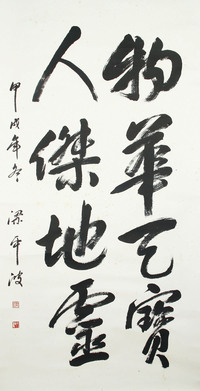 物華天寶
人傑地靈
甲戌年冬
梁平波